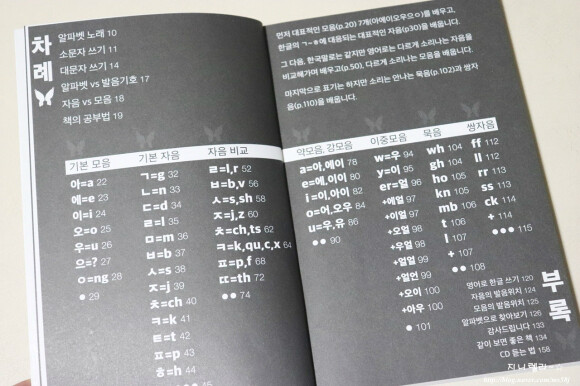 차례
알파벳 노래 10
소문자 쓰기 11
대문자 쓰기 14
알파벳 vs 발음기호 17
자음 vs 모음 18
책의 공부법 19
기본 모음
아=a 22
에=e 23
이=i 24
오=o 25
우=u 26
으=? 27
ㅇ=ng 28
● 29
기본 자음
ㄱ=g 32
ㄴ=n 33
ㄷ=d 34
ㄹ=l 35
ㅁ=m 36
ㅂ=b 37
ㅅ=s 38
ㅈ=j 39
ㅊ=ch 40
ㅋ=k 41
ㅌ=t 42
ㅍ=p 43
ㅎ=h 44
자음 비교
ㄹ=l,r 52
ㅂ=b,v 56
ㅅ=s,sh 58
ㅈ=j,z 60
ㅊ=ch,ts 62
ㅋ=k,qu,c,x 64
ㅍ=p,f 68
ㄸ=th 72
●● 74
먼저 대표적인 모음(p.20) 7개(아에이오우으ㅇ)를 배우고,
한글의 ㄱ~ㅎ에 대응되는 대표적인 자음(p30)을 배웁니다.
그 다음, 한국말로는 같지만 영어로는 다르게 소리나는 자음을
비교해가며 배우고(p.50), 다르게 소리나는 모음을 배웁니다.
마지막으로 표기는 하지만 소리는 안나는 묵음(p.102)과 쌍자
음(p.110)을 배웁니다.
약모음, 강모음
a=아,에이 78
e=에,이이 80
i=이,아이 82
o=어,오우 84
u=우,유 86
●● 90
이중모음
w=우 94
y=이 95
er=얼 96
+애얼 97
+이얼 97
+오얼 98
+우얼 98
+얼 99
+얼언 99
+오이 100
+아우 100
● 101
묵음
wh 104
gh 104
ho 105
kn 105
mb 106
t 106
l 107
+ 107
●● 108
쌍자음
ff 112
ll 112
rr 113
ss 113
ck 114
+ 114
●● 115
부록
영어로 한글 쓰기 120
자음의 발음위치 124
모음의 발음위치 125
알파벳으로 찾아보기 126
감사드립니다 133
같이 보면 좋은 책 134
CD 듣는 법 158